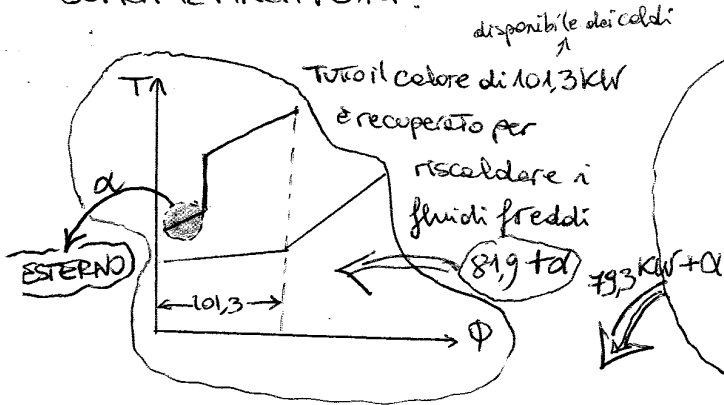 disponibile dai caldi
T
Tutto il calore di 101,3 KW
è recuperato per
riscaldare i
fluidi freddi
α
ESTERNO
81,9 + α
79,3 KW + α
101,3
Φ